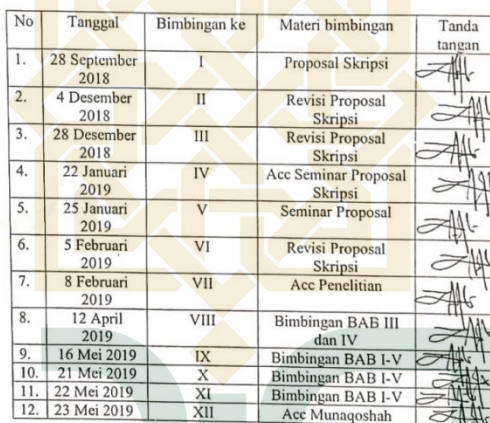 No Tanggal Bimbingan ke Materi bimbingan Tanda
tangan
1. 28 September I Proposal Skripsi
2018
2. 4 Desember II Revisi Proposal
2018 Skripsi
3. 28 Desember III Revisi Proposal
2018 Skripsi
4. 22 Januari IV Acc Seminar Proposal
2019 Skripsi
5. 25 Januari V Seminar Proposal
2019
6. 5 Februari VI Revisi Proposal
2019 Skripsi
7. 8 Februari VII Acc Penelitian
2019
8. 12 April VIII Bimbingan BAB III
2019 dan IV
9. 16 Mei 2019 IX Bimbingan BAB I-V
10. 21 Mei 2019 X Bimbingan BAB I-V
11. 22 Mei 2019 XI Bimbingan BAB I-V
12. 23 Mei 2019 XII Acc Munaqoshah